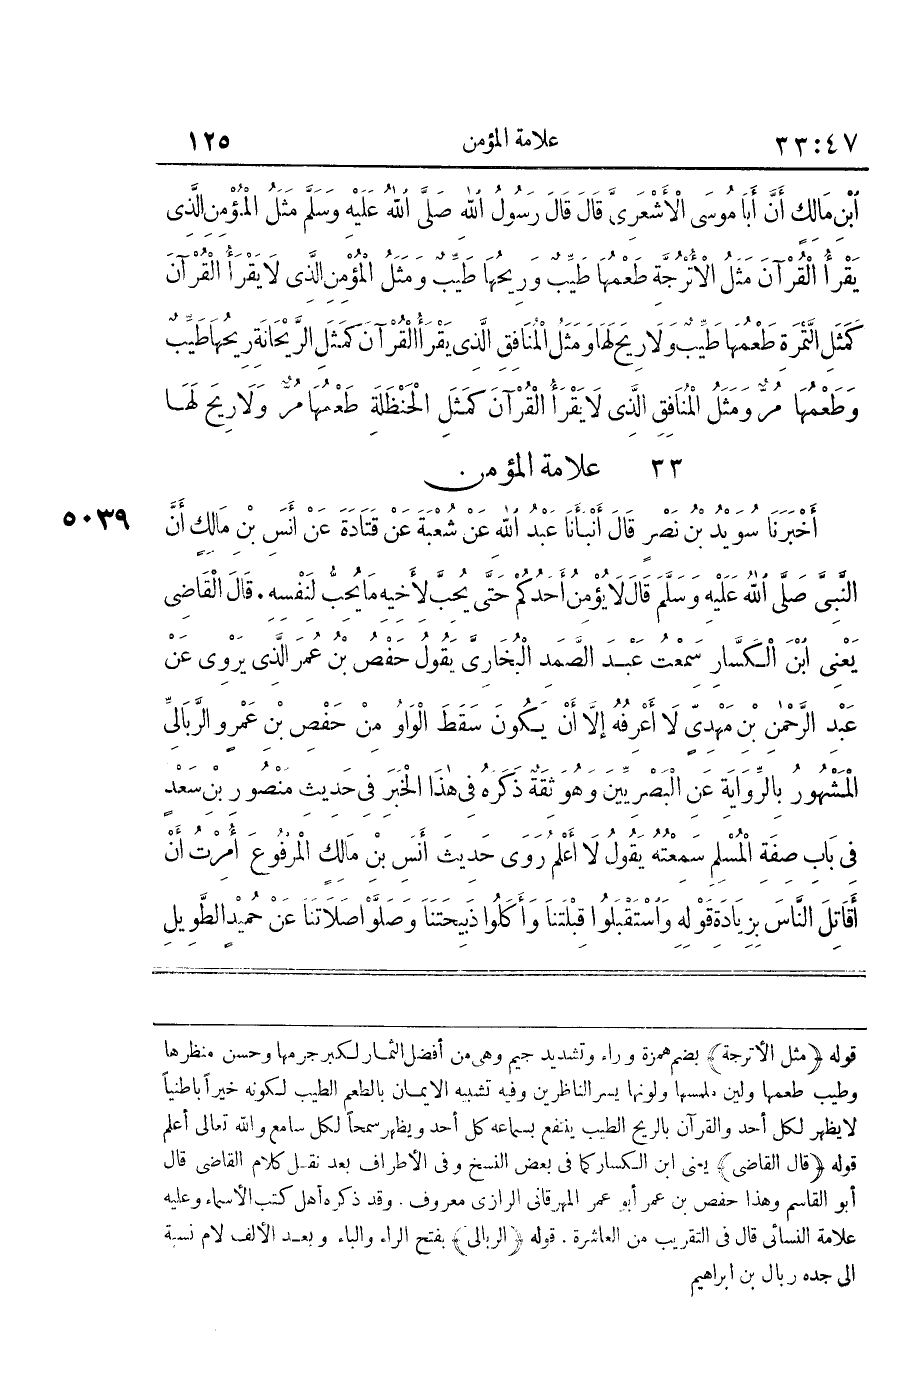 ٣٣:٤٧ علامة المؤمن ١٢٥
ابْنِ مَالِكٍ أَنَّ أَبَا مُوسَى الْأَشْعَرِيَّ قَالَ قَالَ رَسُولُ اللهِ صَلَّى اللهُ عَلَيْهِ وَسَلَّمَ مَثَلُ الْمُؤْمِنِ الَّذِى
يَقْرَأُ الْقُرْآنَ مَثَلُ الْأُتْرُجَّةِ طَعْمُهَا طَيِّبٌ وَرِيحُهَا طَيِّبٌ وَمَثَلُ الْمُؤْمِنِ الَّذِى لَا يَقْرَأُ الْقُرْآنَ
كَمَثَلِ التَّمْرَةِ طَعْمُهَا طَيِّبٌ وَلَا رِيحَ لَهَا وَمَثَلُ الْمُنَافِقِ الَّذِى يَقْرَأُ الْقُرْآنَ كَمَثَلِ الرَّيْحَانَةِ رِيحُهَا طَيِّبٌ
وَطَعْمُهَا مُرٌّ وَمَثَلُ الْمُنَافِقِ الَّذِى لَا يَقْرَأُ الْقُرْآنَ كَمَثَلِ الْحَنْظَلَةِ طَعْمُهَا مُرٌّ وَلَا رِيحَ لَهَا
٣٣ علامة المؤمن
أَخْبَرَنَا سُوَيْدُ بْنُ نَصْرٍ قَالَ أَنْبَأَنَا عَبْدُ اللهِ عَنْ شُعْبَةَ عَنْ قَتَادَةَ عَنْ أَنَسِ بْنِ مَالِكٍ أَنَّ ٥٠٣٩
النَّبِيَّ صَلَّى اللهُ عَلَيْهِ وَسَلَّمَ قَالَ لَا يُؤْمِنُ أَحَدُكُمْ حَتَّى يُحِبَّ لِأَخِيهِ مَا يُحِبُّ لِنَفْسِهِ . قَالَ الْقَاضِى
يَعْنِى ابْنَ الْكَسَّارِ سَمِعْتُ عَبْدَ الصَّمَدِ الْبُخَارِيَّ يَقُولُ حَفْصُ بْنُ عُمَرَ الَّذِى يَرْوِى عَنْ
عَبْدِ الرَّحْمٰنِ بْنِ مَهْدِيٍّ لَا أَعْرِفُهُ إِلَّا أَنْ يَكُونَ سَقَطَ الْوَاوُ مِنْ حَفْصِ بْنِ عَمْرٍو الرَّبَالِيِّ
الْمَشْهُورُ بِالرِّوَايَةِ عَنِ الْبَصْرِيِّينَ وَهُوَ ثِقَةٌ ذَكَرَهُ فِى هٰذَا الْخَبَرِ فِى حَدِيثِ مَنْصُورِ بْنِ سَعْدٍ
فِى بَابِ صِفَةِ الْمُسْلِمِ سَمِعْتُهُ يَقُولُ لَا أَعْلَمُ رَوَى حَدِيثَ أَنَسِ بْنِ مَالِكٍ الْمَرْفُوعَ أُمِرْتُ أَنْ
أُقَاتِلَ النَّاسَ بِزِيَادَةِ قَوْلِهِ وَاسْتَقْبَلُوا قِبْلَتَنَا وَأَكَلُوا ذَبِيحَتَنَا وَصَلَّوْا صَلَاتَنَا عَنْ حُمَيْدٍ الطَّوِيلِ
قوله ﴿مثل الأترجة﴾ بضم همزة وراء وتشديد جيم وهى من أفضل الثمار لكبر جرمها وحسن منظرها
وطيب طعمها ولين ملمسها ولونها يسر الناظرين وفيه تشبيه الايمان بالطعم الطيب لكونه خيراً باطنياً
لا يظهر لكل أحد والقرآن بالريح الطيب ينتفع بسماعه كل أحد ويظهر سمحاً لكل سامع والله تعالى أعلم
قوله ﴿قال القاضى﴾ يعنى ابن الكسار كما فى بعض النسخ وفى الأطراف بعد نقل كلام القاضى قال
أبو القاسم وهذا حفص بن عمر أبو عمر المهرقانى الرازى معروف . وقد ذكره أهل كتب الأسماء وعليه
علامة النسائى قال فى التقريب من العاشرة . قوله ﴿الربالى﴾ بفتح الراء والباء وبعد الألف لام نسبة
الى جده ربال بن ابراهيم